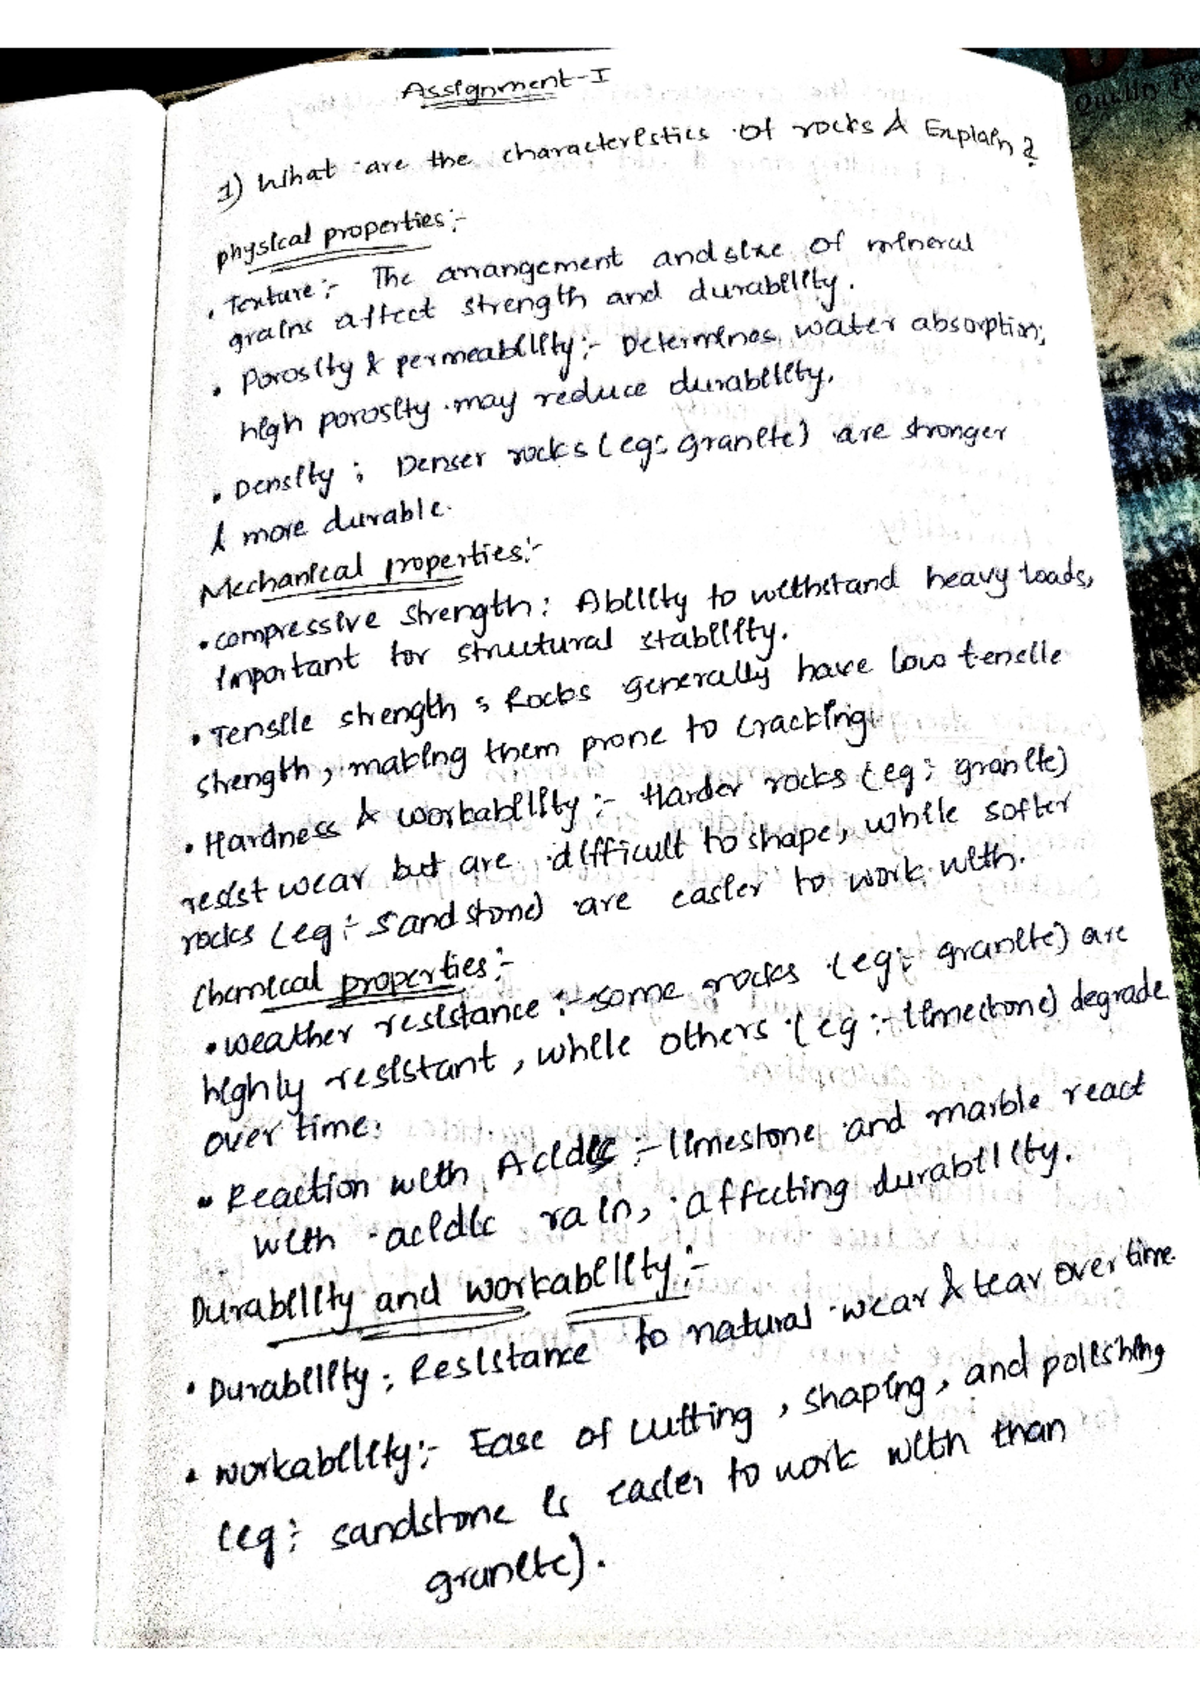 Assignment-I
1) What are the characteristics of rocks & Explain?
physical properties:-
• Texture:- The arrangement and size of mineral
grains affect strength and durability.
• Porosity & permeability:- Determines water absorption;
high porosity may reduce durability.
• Density; Denser rocks (eg: granite) are stronger
& more durable.
Mechanical properties:-
• compressive strength: Ability to withstand heavy loads,
important for structural stability.
• Tensile strength; Rocks generally have low tensile
strength, making them prone to cracking.
• Hardness & workability:- Harder rocks (eg: granite)
resist wear but are difficult to shape, while softer
rocks (eg:- sandstone) are easier to work with.
Chemical properties:-
• weather resistance:- some rocks (eg: granite) are
highly resistant, while others (eg:- limestone) degrade
over time.
• Reaction with Acids:- limestone and marble react
with acidic rain, affecting durability.
Durability and workability:-
• Durability; Resistance to natural wear & tear over time.
• workability:- Ease of cutting, shaping, and polishing
(eg: sandstone is easier to work with than
granite).
Quality